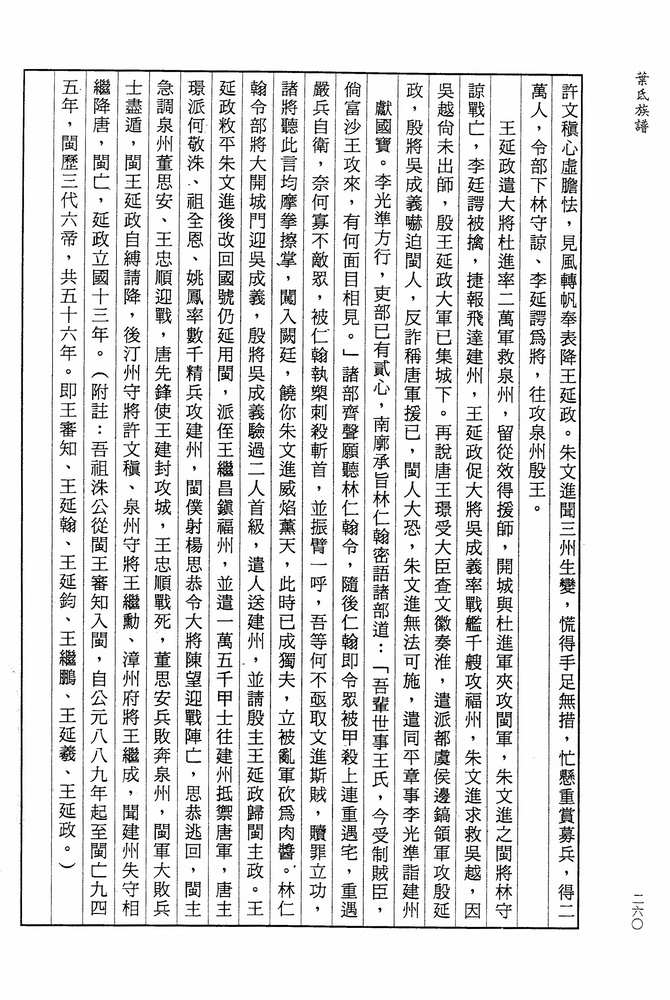 葉氏族譜
二六〇
許文稹心虛膽怯，見風轉帆奉表降王延政。朱文進聞三州生變，慌得手足無措，忙懸重賞募兵，得二
萬人，令部下林守諒、李廷諤爲將，往攻泉州殷王。
王延政遣大將杜進率二萬軍救泉州，留從效得援師，開城與杜進軍夾攻閩軍，朱文進之閩將林守
諒戰亡，李廷諤被擒，捷報飛達建州，王延政促大將吳成義率戰艦千艘攻福州，朱文進求救吳越，因
吳越尙未出師，殷王延政大軍已集城下。再說唐王璟受大臣查文徽奏淮，遣派都虞侯邊鎬領軍攻殷延
政，殷將吳成義嚇迫閩人，反詐稱唐軍援已，閩人大恐，朱文進無法可施，遣同平章事李光準詣建州
獻國寶。李光準方行，吏部已有貳心，南廓承旨林仁翰密語諸部道：「吾輩世事王氏，今受制賊臣，
倘富沙王攻來，有何面目相見。」諸部齊聲願聽林仁翰令，隨後仁翰即令眾被甲殺上連重遇宅，重遇
嚴兵自衛，奈何寡不敵眾，被仁翰執槊刺殺斬首，並振臂一呼，吾等何不亟取文進斯賊，贖罪立功，
諸將聽此言均摩拳擦掌，闖入闕廷，饒你朱文進威焰薰天，此時已成獨夫，立被亂軍砍爲肉醬。林仁
翰令部將大開城門迎吳成義，殷將吳成義驗過二人首級，遣人送建州，並請殷主王延政歸閩主政。王
延政敉平朱文進後改回國號仍延用閩，派侄王繼昌鎭福州，並遣一萬五千甲士往建州抵禦唐軍，唐主
璟派何敬洙、祖全恩、姚鳳率數千精兵攻建州，閩僕射楊思恭令大將陳望迎戰陣亡，思恭逃回，閩主
急調泉州董思安、王忠順迎戰，唐先鋒使王建封攻城，王忠順戰死，董思安兵敗奔泉州，閩軍大敗兵
士盡遁，閩王延政自縛請降，後汀州守將許文稹、泉州守將王繼勳、漳州府將王繼成，聞建州失守相
繼降唐，閩亡，延政立國十三年。（附註：吾祖洙公從閩王審知入閩，自公元八八九年起至閩亡九四
五年，閩歷三代六帝，共五十六年。即王審知、王延翰、王延鈞、王繼鵬、王延羲、王延政。）